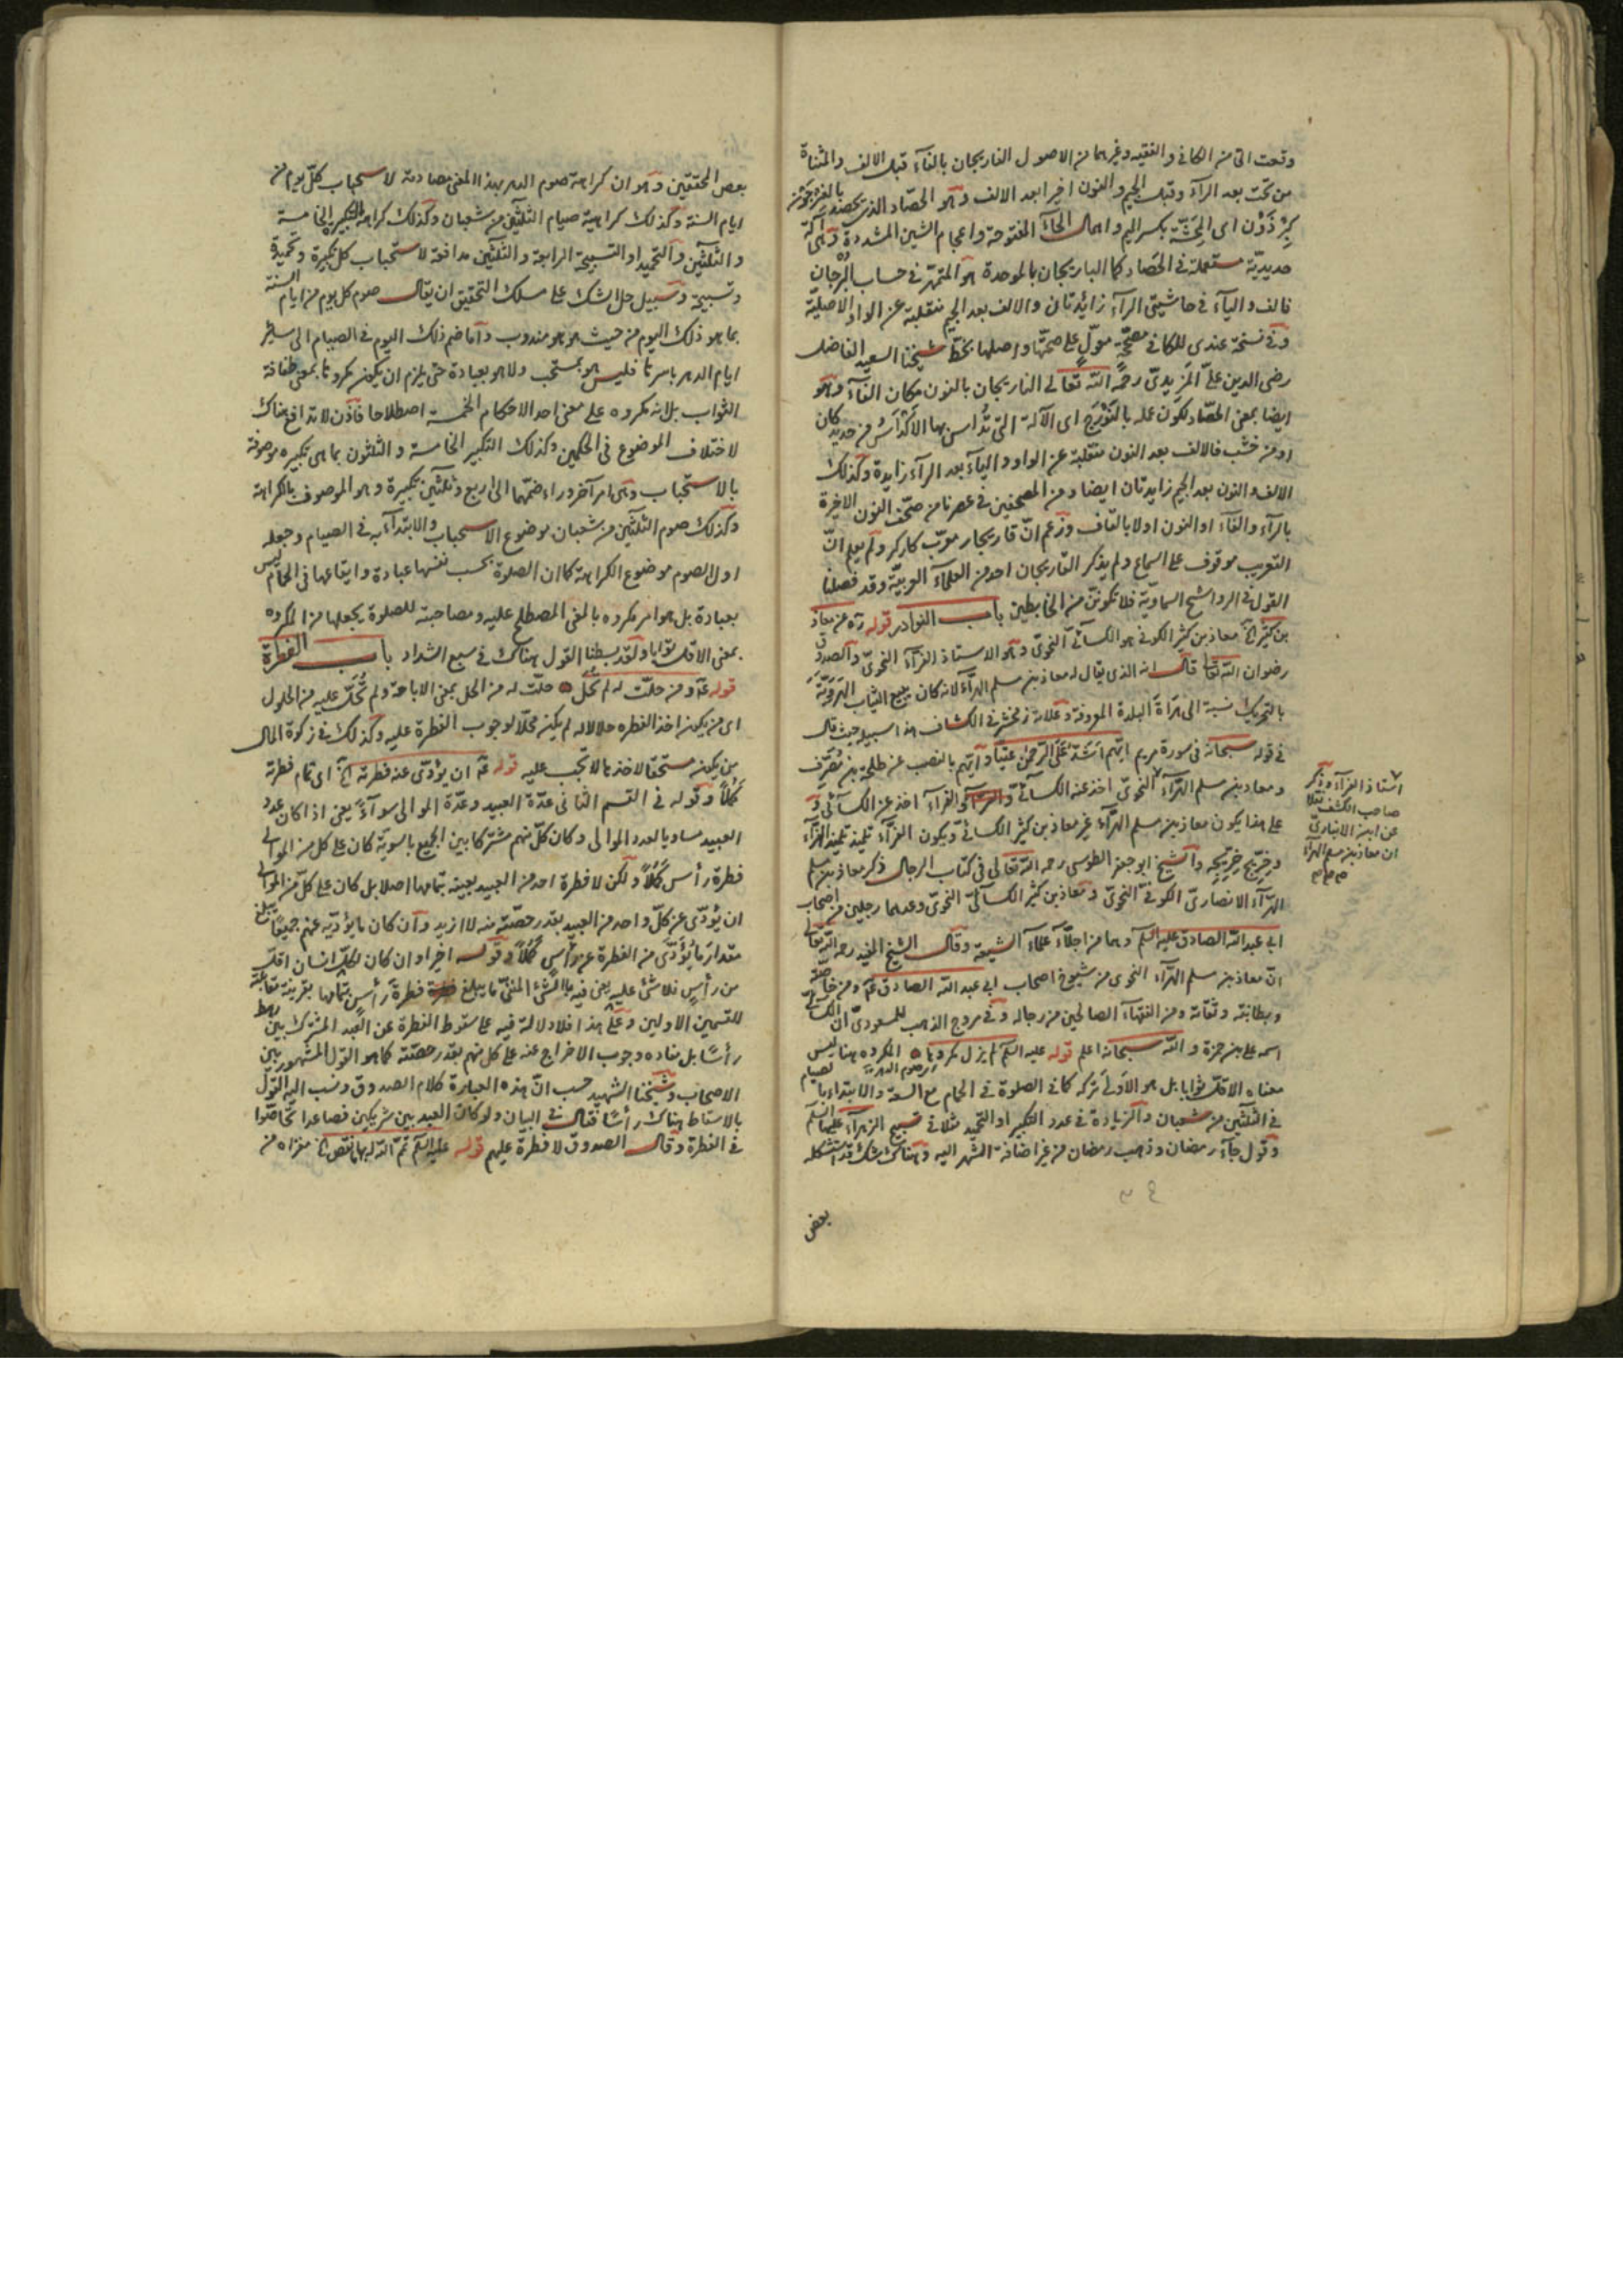 وقعت التي من الكافي والفقيه وغيرهما من الاصول الفاريجان بالفآء قبل الالف والمثناة
من تحت بعد الرآء وقبل الجيم والنون اخيرا بعد الالف وهو الحصّاد الذي يحصد بالفره جون
اى المِحَشّة بكسر الميم واهمال الحآء المفتوحة واعجام الشين المشددة وهى آلة
حديديّة مستعملة في الحَصاد كما الباريجان بالموحدة هو المتمهّر في حساب البُرجان
فالف والياء في حاشيتى الرآء زائدتان والالف بعد الجيم منقلبة عن الواو الاصليّة
وفي نسخة عندى للكافي مصحّحة معوّل على صحّتها واصلها بخطّ شيخنا السعيد الفاضل
رضى الدين علىّ المَزيدىّ رحمه الله تعالى الناريجان بالنون مكان الفآء وهو
ايضا بمعنى الحصّاد لكون عمله بالنَوْرَج اى الآلة التى تُداس بها الاكداس من حديد كان
او من خشب فالالف بعد النون منقلبة عن الواو والياء بعد الرآء زايدة وكذلك
الالف والنون بعد الجيم زايدتان ايضا ومن المصحفين في عصرنا من صحّف النون الاخيرة
بالرآء والفآء او النون اولا بالقاف وزعم انّ قاريجار معرّب كاركر ولم يعلم انّ
التعريب موقوف على السماع ولم يذكر القاريجان احد من العلمآء العربيّة وقد فصلنا
القول في الرواشح السماويّة فلا تكوننّ من الخابطين باب النوادر قوله ره عن معاذ
بن كثير الخ معاذ بن كثير الكوفي هو الكسآئىّ النحوىّ وهو الاستاذ الفرآء النحوىّ والصدوق
رضوان الله تعالى قال انه الذى يقال له معاذ بن مسلم الهرّآء لانه كان يبيع الثياب الهَرَويّة
بالتحريك نسبة الى هَراة البلدة المعروفة وعلامة زمخشر في الكشاف هذا سبيله حيث قال
في قوله سبحانه في سورة مريم ايّهم اشدّ على الرحمن عتيا وايّهم بالنصب عن طلحة بن مُصرّف
ومعاذ بن مسلم الهرّآء النحوىّ اخذ عنه الكسآئىّ والفرآء اخذ عن الكسآئى و
على هذا يكون معاذ بن مسلم الهرّآء غير معاذ بن كثير الكسائىّ ويكون الفرّآء تلميذ تلميذ الهرّآء
وخرّيج خرّيجه والشيخ ابو جعفر الطوسى رحمه الله تعالى في كتاب الرجال ذكر معاذ بن مسلم
الهرّآء الانصارىّ الكوفىّ النحوىّ ومعاذ بن كثير الكسآئىّ النحوىّ وعدهما رجلين من اصحاب
ابى عبد الله الصادق عليه السلم وهما من اجلّآء علمآء الشيعة وقال الشيخ المفيد رحمه الله تعالى
انّ معاذ بن مسلم الهرّآء النحوى من شيوخ اصحاب ابى عبد الله الصادق عم ومن خاصته
وبطانته وثقاته ومن الفقهآء الصالحين من رجاله وفي مروج الذهب للمسعودىّ انّ الكسائى
اسمه على بن حمزة والله سبحانه اعلم قوله عليه السلم لم يزل مكروها المكروه هنا ليس
معناه الاقلّ ثوابا بل هو الاَولى تركه كما في الصلوة في الحمام مع السعة والابتداء بالصيام
في الثلثين من شعبان والزيادة في عدد التكبير او التحميد مثلا في تسبيح الزهرآء عليها السلم
وقول جآء رمضان وذهب رمضان من غير اضافة الشهر اليه وهناك شك قد استشكله
بعض
استاذ الفرآء وذكر
صاحب الكشف نقلا
عن ابن الانبارىّ
ان معاذ بن مسلم الهرآء
بعض المحققين وهو ان كراهة صوم الدهر بهذا المعنى مصادمة لاستحباب كل يوم من
ايام السنة وكذلك كراهية صيام الثلثين من شعبان وكذلك كراهة التكبير الخامسة
والثلثين والتحميد او التسبيحة الرابعة والثلثين مدافعة لاستحباب كل تكبيرة وتحميدة
وتسبيحة وسبيل حل الشك على مسلك التحقيق ان يقال صوم كل يوم من ايام السنة
بما هو ذلك اليوم من حيث هو هو مندوب واما ضم ذلك اليوم في الصيام الى ساير
ايام الدهر باسرها فليس هو بمستحب ولا هو بعبادة حتى يلزم ان يكون مكروها بمعنى طفافة
الثواب بل انه مكروه على معنى احد الاحكام الخمسة اصطلاحا فاذن لا تدافع هناك
لاختلاف الموضوع في الحكمين وكذلك التكبير الخامسة والثلثون بما هى تكبيره موصوفة
بالاستحباب وهى امر آخر وراء ضمّها الى اربع وثلثين تكبيرة وهو الموصوف بالكراهة
وكذلك صوم الثلثين من شعبان موضوع الاستحباب والابتدآء به في الصيام وجعله
اول الصوم موضوع الكراهة كما ان الصلوة بحسب نفسها عبادة وايقاعها في الحمام ليس
بعبادة بل هو امر مكروه بالمعنى المصطلح عليه ومصاحبته للصلوة يجعلها من المكروه
بمعنى الاقلّ ثوابا ولقد بسطنا القول هناك في سبع الشداد باب الفطرة
قوله عم ومن حلّت له لم تحُلّ حلّت له من الحلّ بمعنى الاباحة ولم تُحلّ عليه من الحلول
اى من يكون اخذ الفطره حلالا له لم يكن محلّا لوجوب الفطرة عليه وكذلك في زكوة المال
من يكون مستحقا لاخذها لا تجب عليه قوله عم ان يؤدّى عنه فطرته الخ اى تمام فطرته
كمُلًا وقوله في القسم الثانى عدّة العبيد وعدّة الموالى سوآءً يعنى اذا كان عدد
العبيد مساويا لعدد الموالى وكان كلّ منهم مشتركا بين الجميع بالسوية كان على كل من الموالى
فطرة رأس كَمُلًا ولكن لا فطرة احد من العبيد بعينه بتمامها اصلا بل كان على كلّ من الموالى
ان يؤدّى عن كلّ واحد من العبيد بقدر حصّته منه لا ازيد وان كان ما يؤدّيه عنهم جميعًا يبلغ
مقدار ما يُؤَدّى من الفطرة عن رأسٍ كمُلًا وقوله اخيرا وان كان لكلّ انسان اقلّ
من رأسٍ فلا شئ عليه يعنى فيه بالشئ المنفىّ ما يبلغ فطرة رأسٍ بتمامها بقرينة مقابلة
للقسمين الاولين وعلى هذا فلا دلالة فيه على سقوط الفطرة عن العبد المشترك بين رهط
رأسًا بل مفاده وجوب الاخراج عنه على كل منهم بقدر حصّته كما هو القول المشهور بين
الاصحاب وشيخنا الشهيد حسب انّ هذه العبارة كلام الصدوق ونسب اليه القول
بالاسقاط هناك رأسًا فقال في البيان ولو كان العبد بين شريكين فصاعدا تحاصّوا
في الفطرة وقال الصدوق لا فطرة عليهم قوله عليه السلم تمّ الله لهما نقص الخ مغزاه من